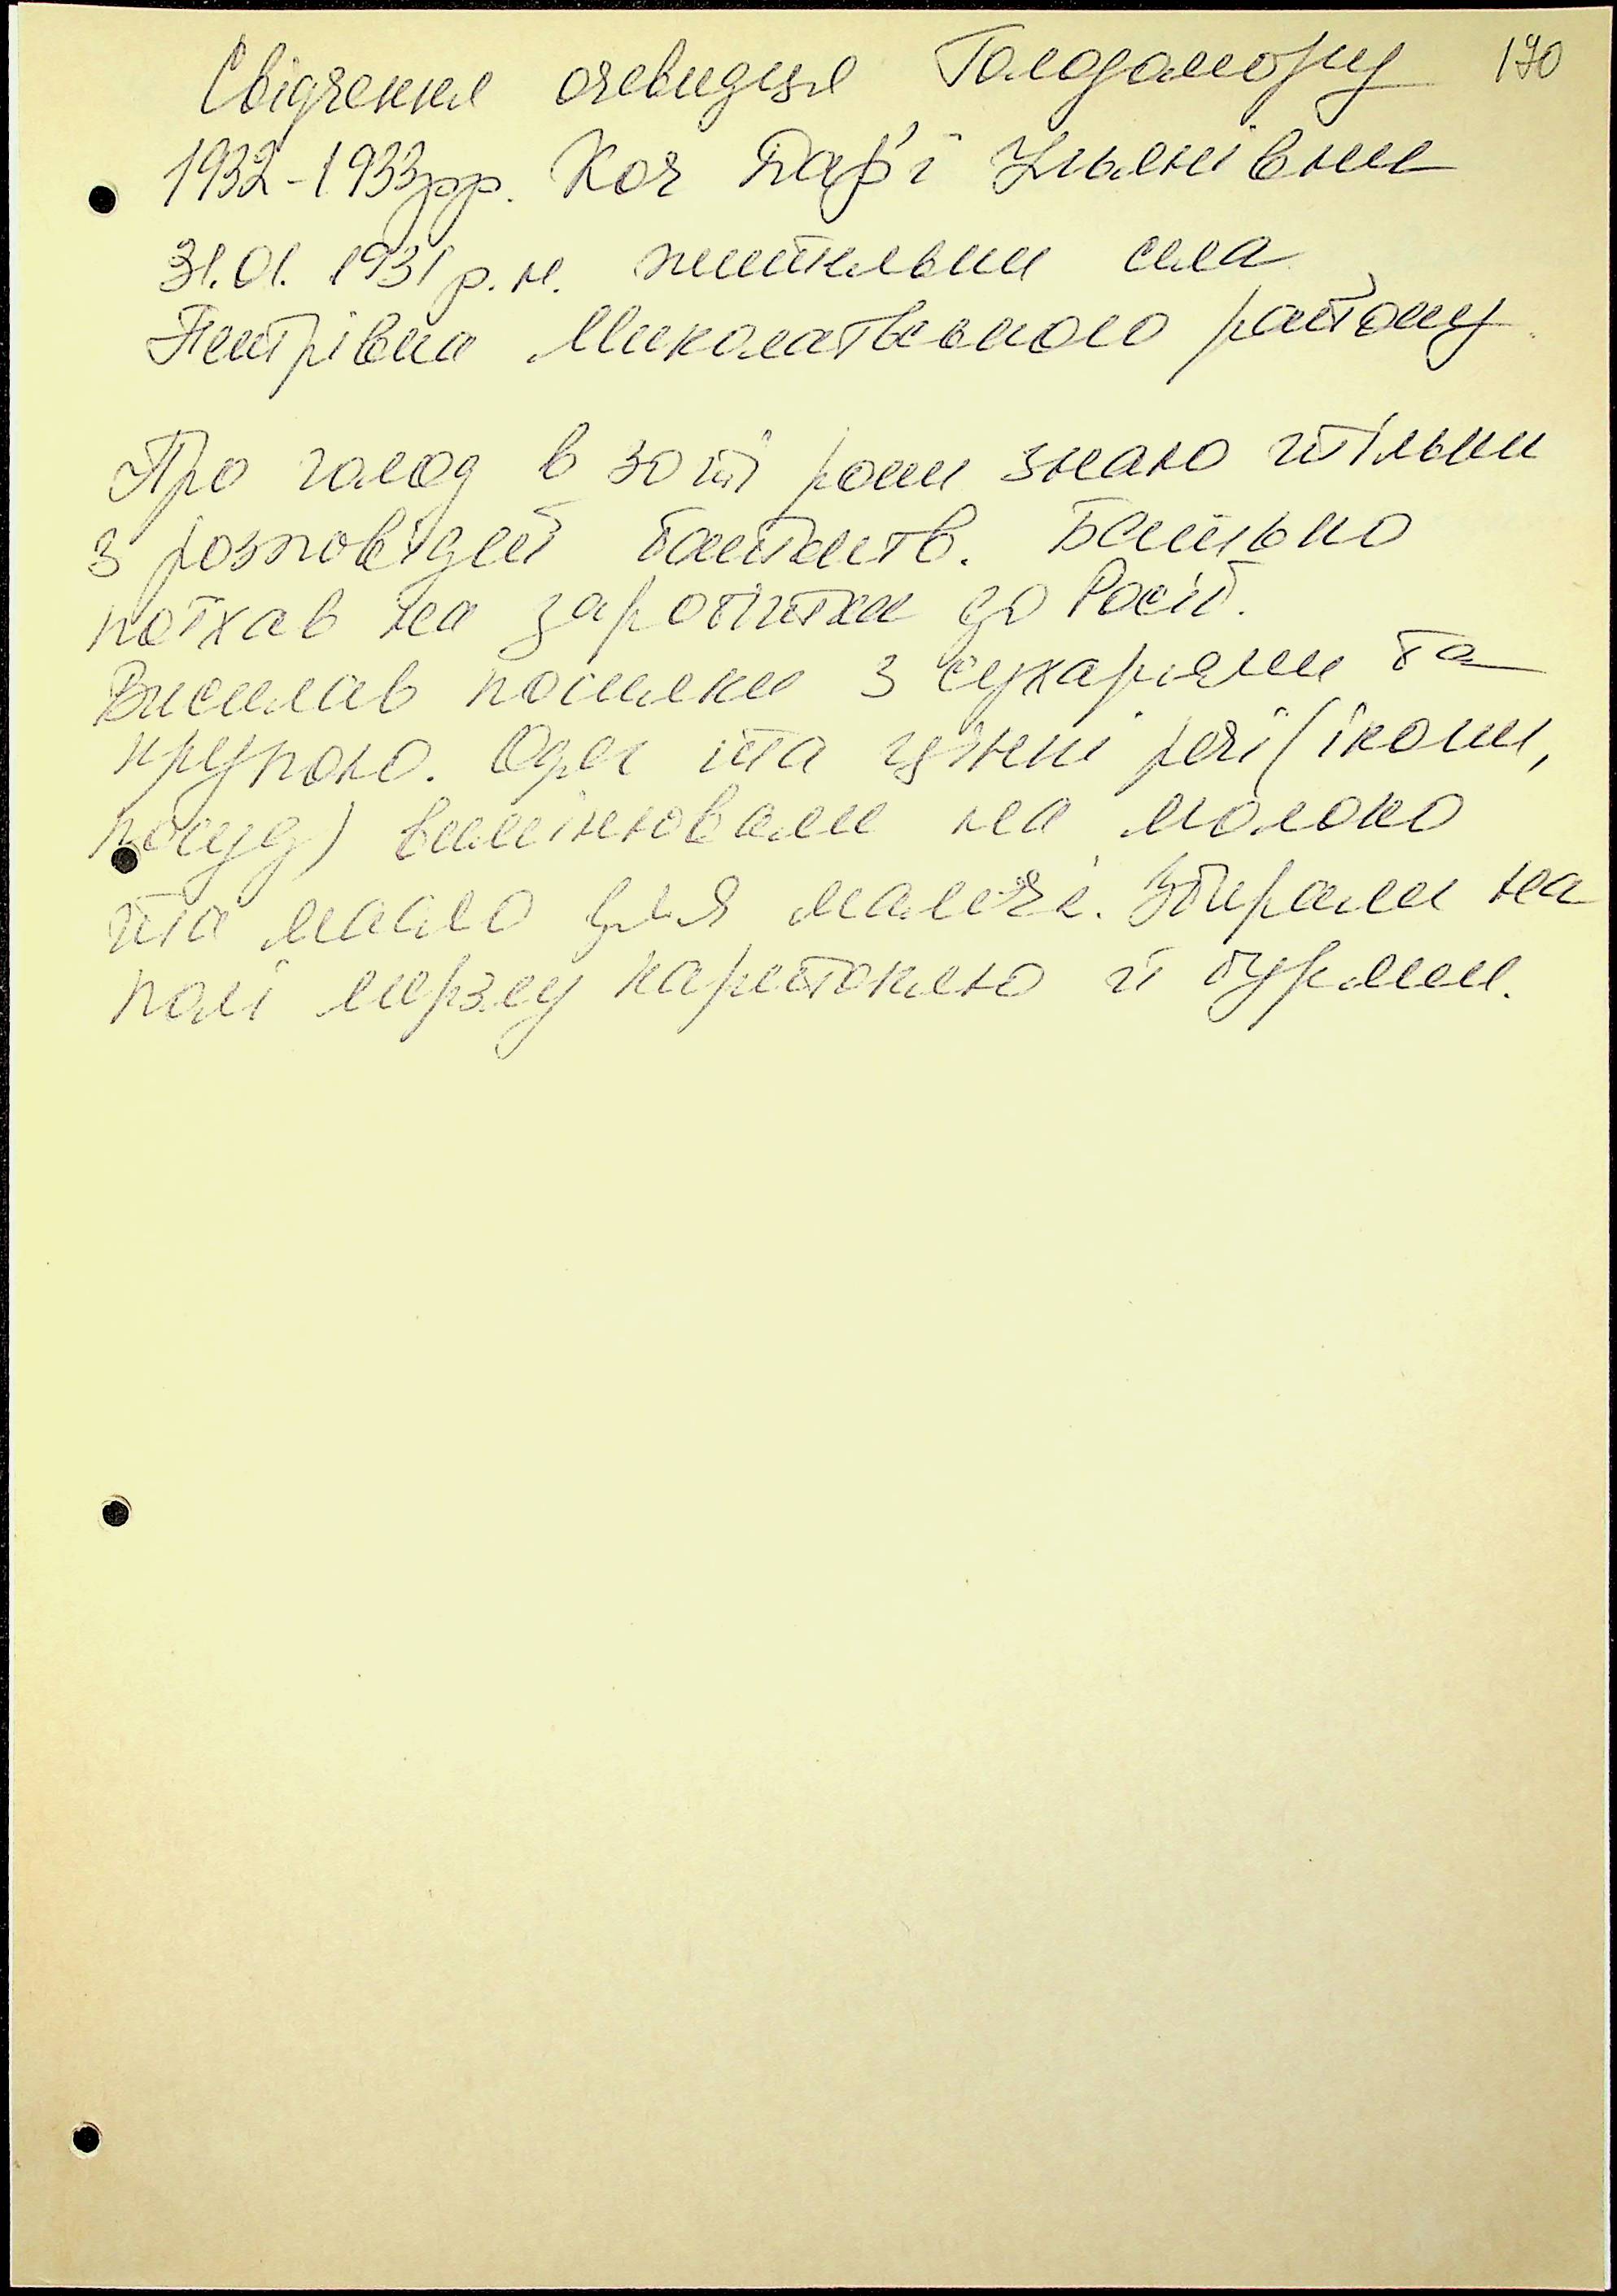 Свідчення очевидця Голодомору 190
1932-1933рр. Коч Дар'ї Ульянівни
31.01.1931 р.н. жительки села
Петрівка Миколаївського району
Про голод в 30ті роки знаю тільки
з розповідей батьків. Батько
поїхав на заробітки до Росії.
Висилав посилки з сухарями та
крупою. Одяг та цінні речі (ікони,
посуд) вимінювали на молоко
та масло для малечі. Збирали на
полі мерзлу картоплю й буряки.